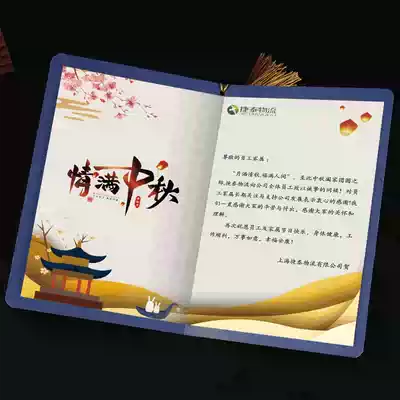 情满中秋
捷泰物流
尊敬的员工家属：
"月洒清秋，福满人间"。至此中秋阖家团圆之
际，捷泰物流向公司全体员工致以诚挚的问候！对员
工家属长期关注与支持公司发展表示衷心的感谢！我
们一直感谢大家的辛劳与付出，感谢大家的关怀和
理解。
再次祝愿员工及家属节日快乐，身体健康，工
作顺利，万事如意，幸福安康！
上海捷泰物流有限公司贺